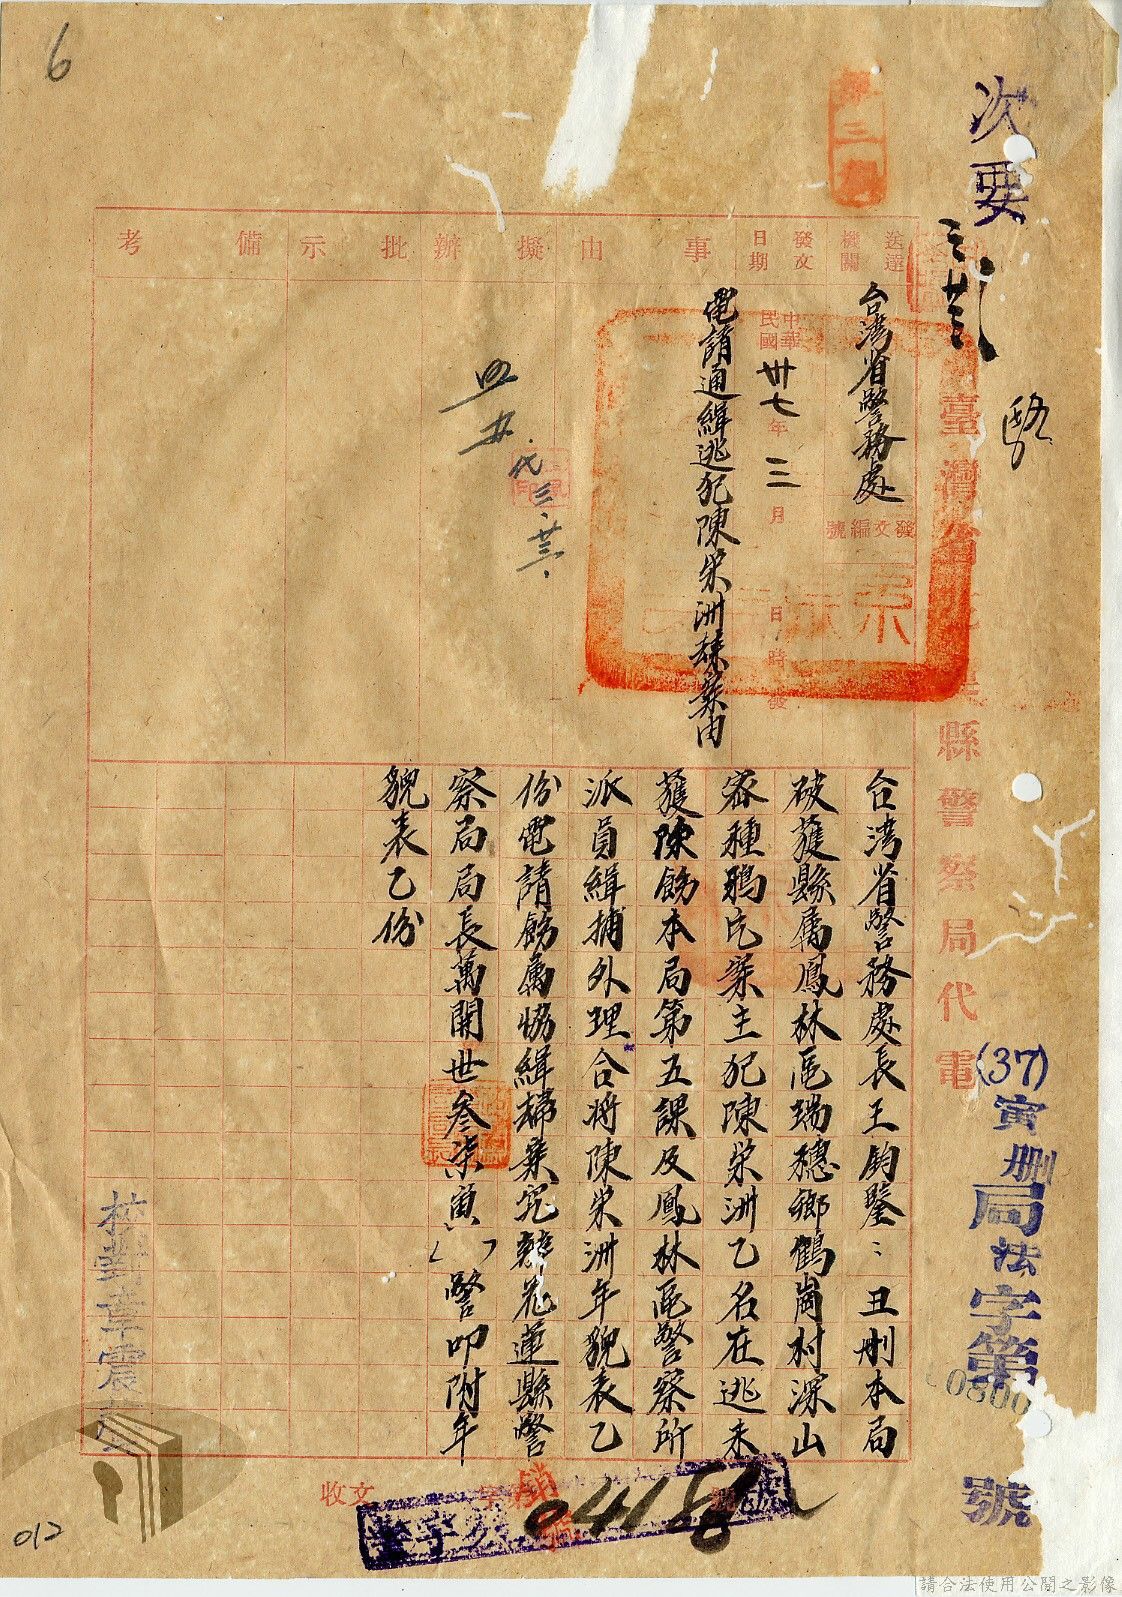 6
次要
臺灣省
縣警察局代電
(37)寅刪局法字第
0800
號
送達機關
台湾省警務處
發文編號
發文日期
中華民國卅七年三月
日
時
發
事由
電請通緝逃犯陳栄洲歸案由
擬辦
代
三.廿三.
批示
備考
台湾省警務處長王鈞鑒：丑刪本局
破獲縣属鳳林區瑞穗鄉鶴崗村深山
密種鴉片案主犯陳栄洲乙名在逃未
獲陳飭本局第五課及鳳林區警察所
派員緝捕外理合将陳栄洲年貌表乙
份電請飭属協緝歸案究辦花蓮縣警
察局局長萬開世叁柒寅（　）警叩附年
貌表乙份
校對
震
收文
字第
04158
號
012
請合法使用公開之影像